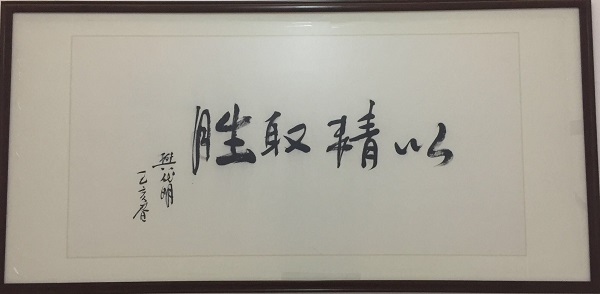 以精取胜
樊代明
乙亥